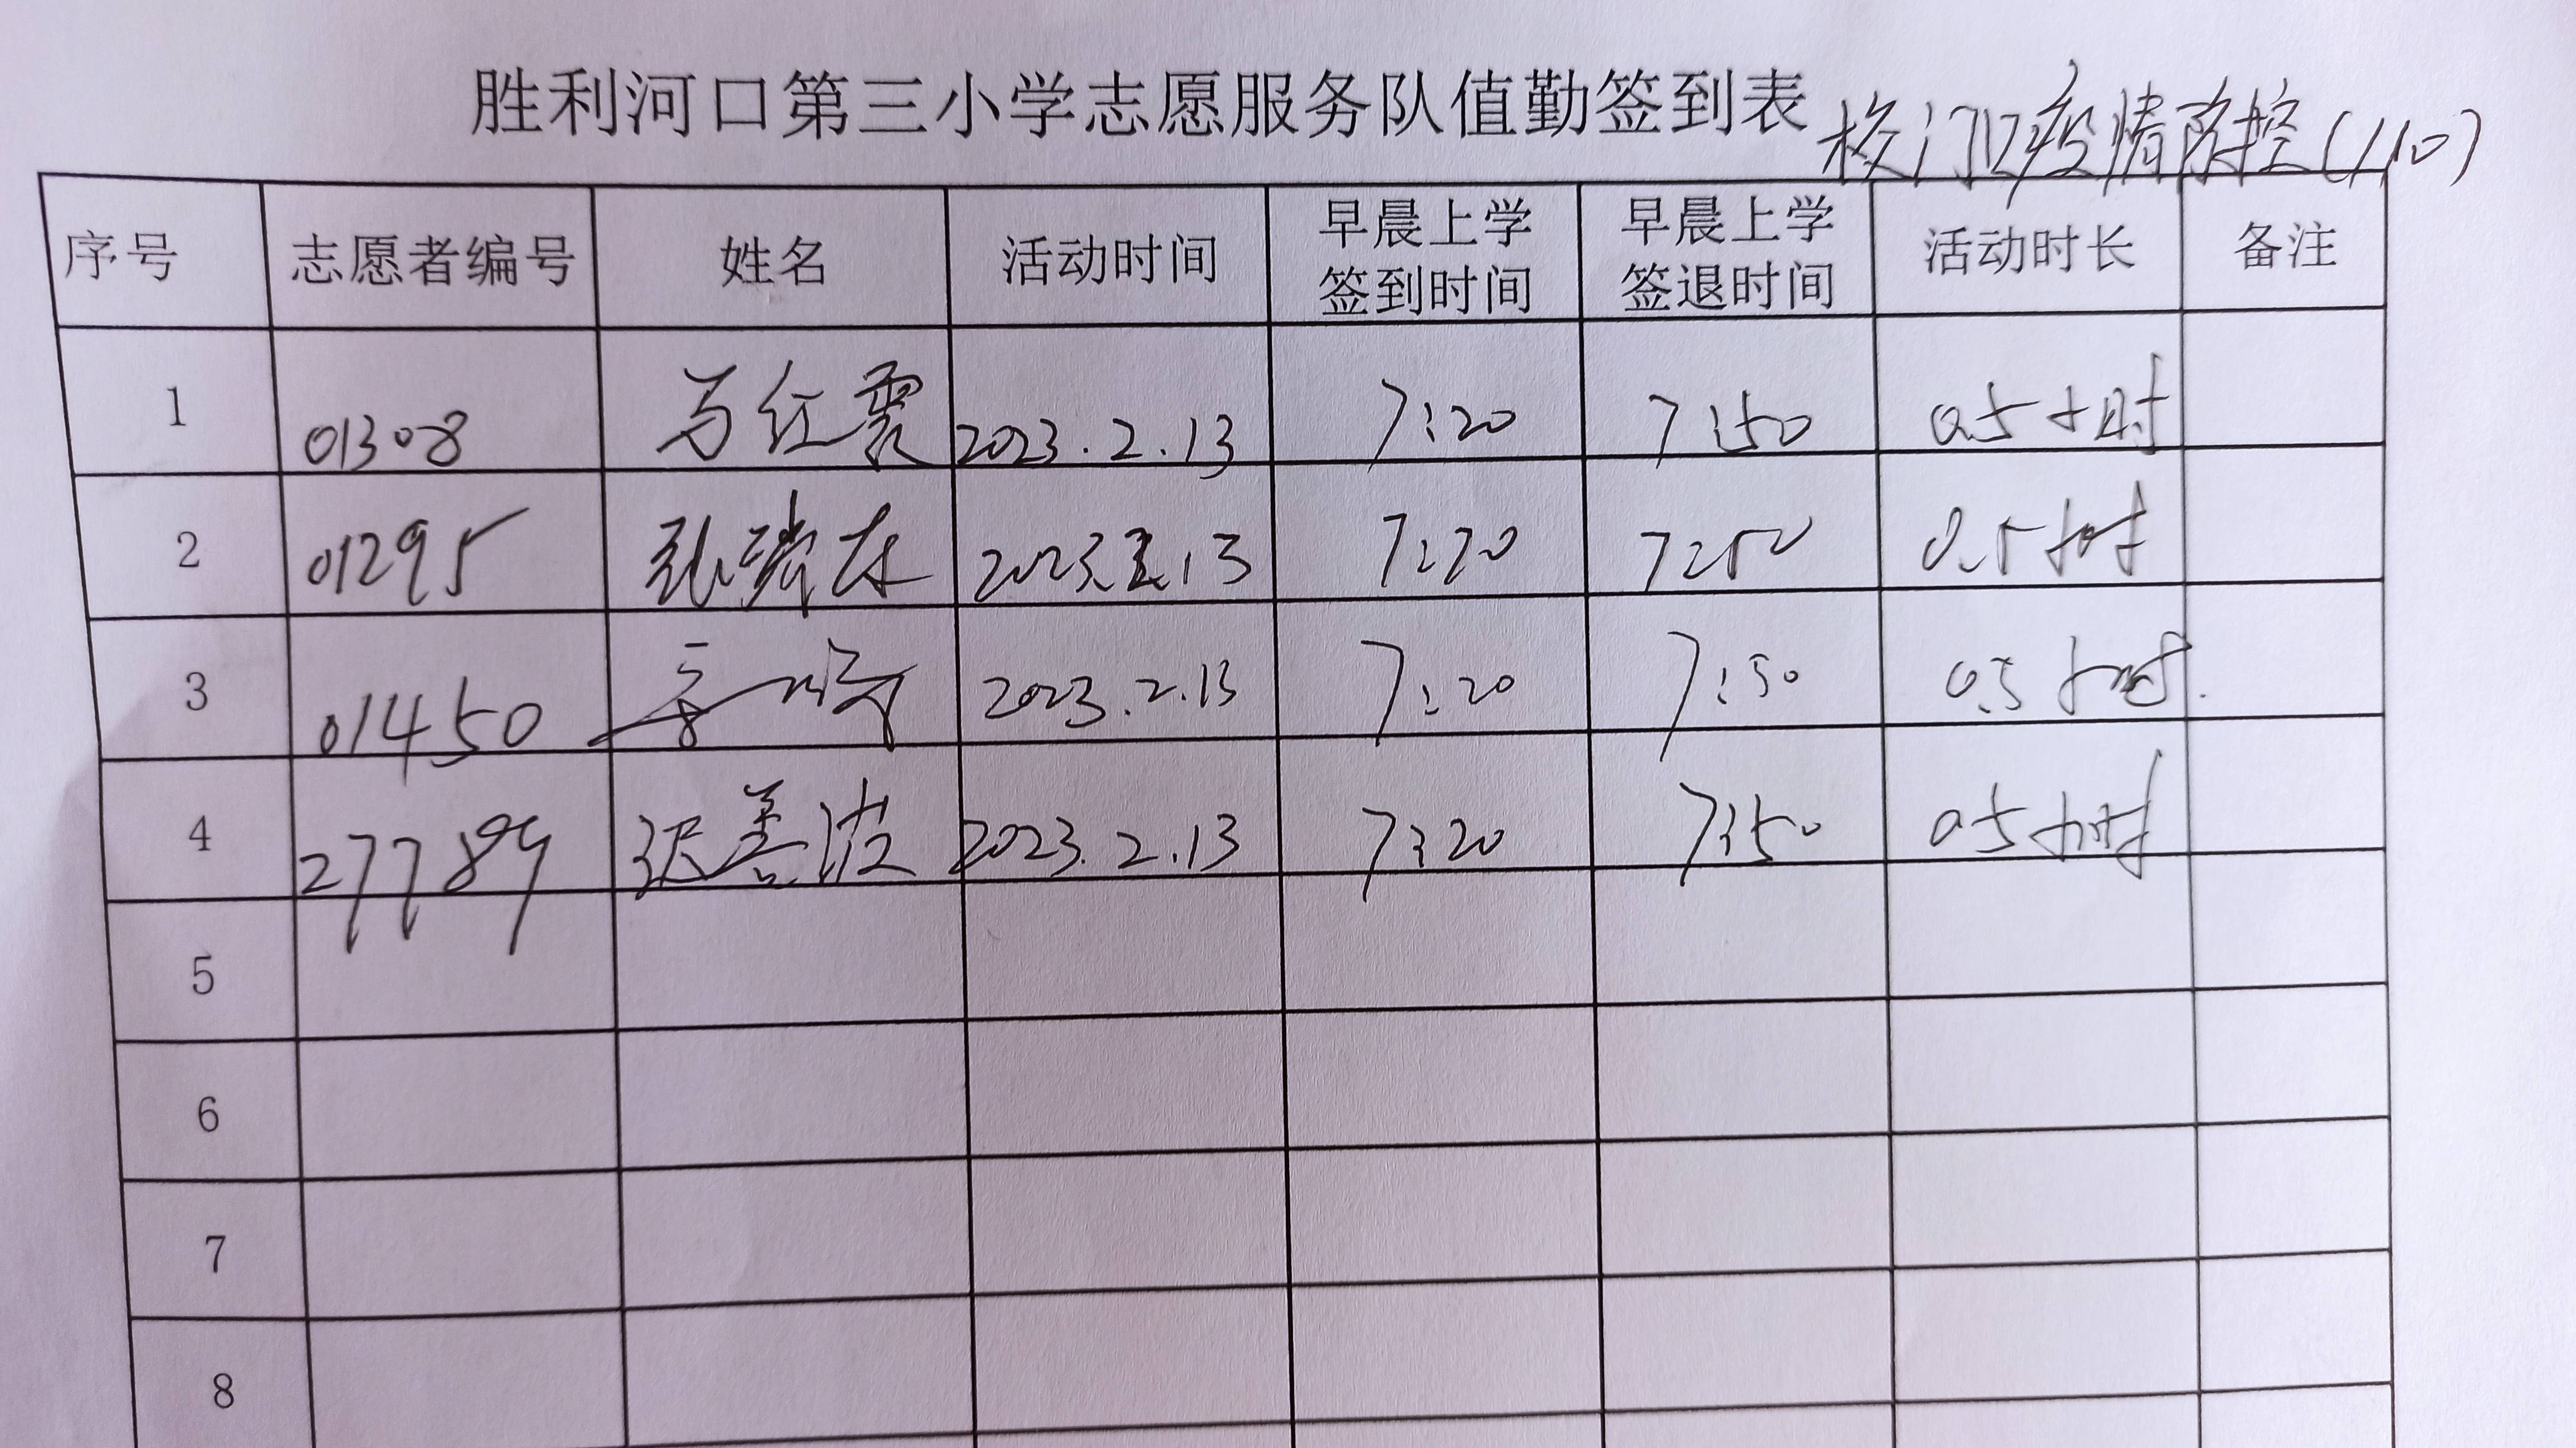 胜利河口第三小学志愿服务队值勤签到表 校门口疫情防控(110)
序号 志愿者编号 姓名 活动时间 早晨上学签到时间 早晨上学签退时间 活动时长 备注
1 01308 马红霞 2023.2.13 7:20 7:50 0.5小时
2 01295 张瑞 2023.2.13 7:20 7:50 0.5小时
3 01450 2023.2.13 7:20 7:50 0.5小时
4 27789 迟善波 2023.2.13 7:20 7:50 0.5小时
5
6
7
8